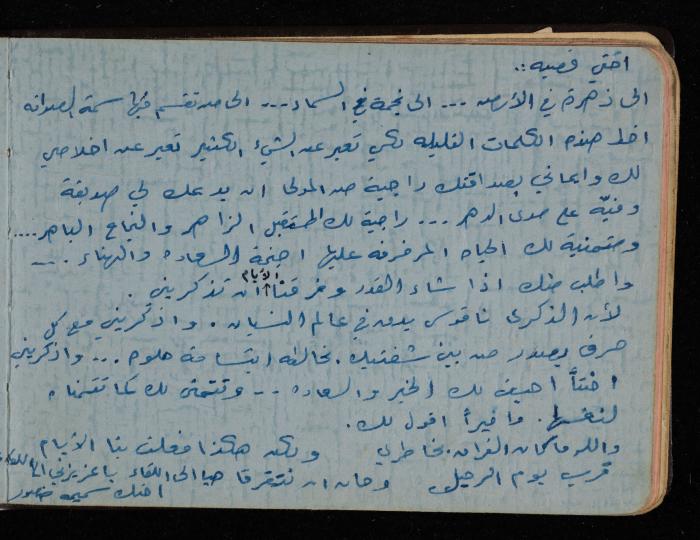 اختي فصيه :.
الى زهرة في الأرض ... الى نجمة في السماء ... الى من تقسم فيها سمة الصداقه
اخط هذه الكلمات القليله لكي تعبر عن الشيء الكثير تعبر عن اخلاصي
لك وايماني بصداقتك راجية من المولى ان يدعك لي صديقة
وفيّة على مدى الدهر ... راجية لك المستقبل الزاهر والنجاح الباهر ....
ومتمنية لك الحياه المرفرفه عليها اجنحة السعاده والهناء . ...
واطلب منك اذا شاء القدر وفرقتنا الأيام ان تذكريني .
لأن الذكرى ناقوس يدق في عالم النسيان . واذكريني مع كل
حرف يصدر من بين شفتيك . تخالطه ابتسامة حلوه ... واذكريني
اختاً احبت لك الخير والسعاده .. وتتمنى لك كما تتمناه
لنفسها . واخيراً اقول لك .
والله ما كان الفراق بخاطري ولكن هكذا فعلت بنا الأيام
قرب يوم الرحيل وحان ان نفترقا هيا الى اللقاء يا عزيزتي الى اللقاء
اختك سميحه